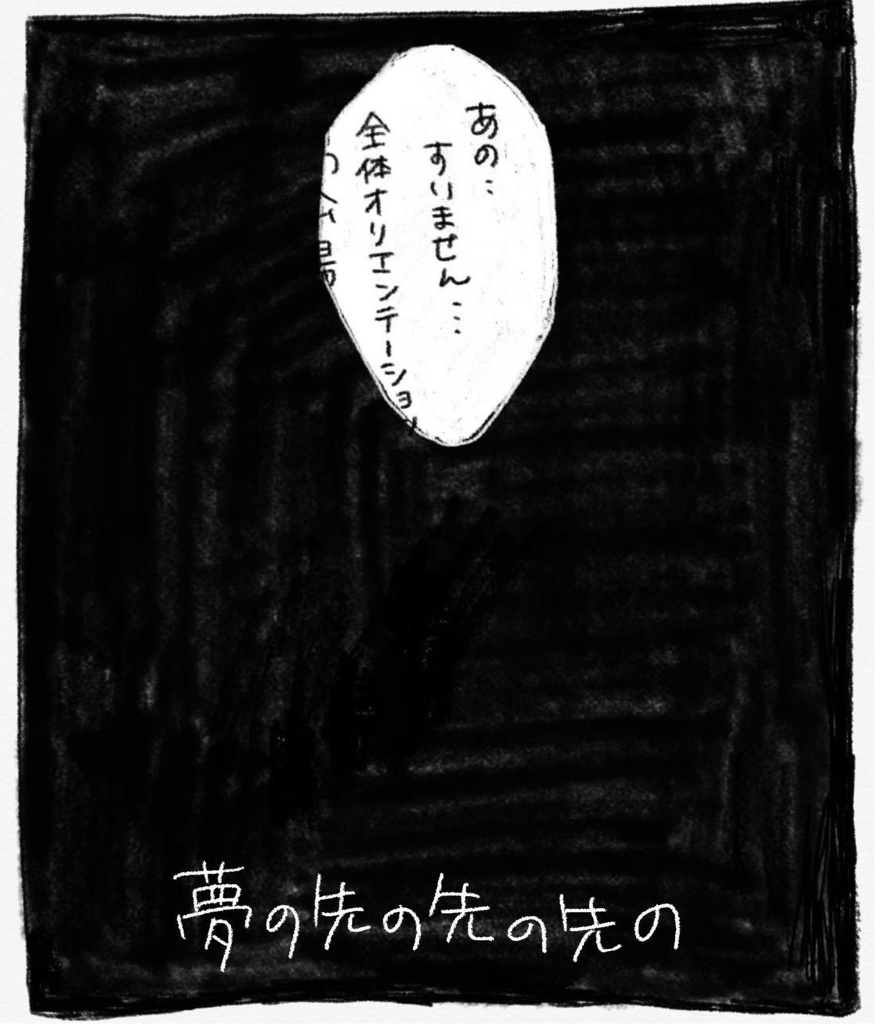 あの…
すいません…
全体オリエンテーション
の会場
夢の先の先の先の